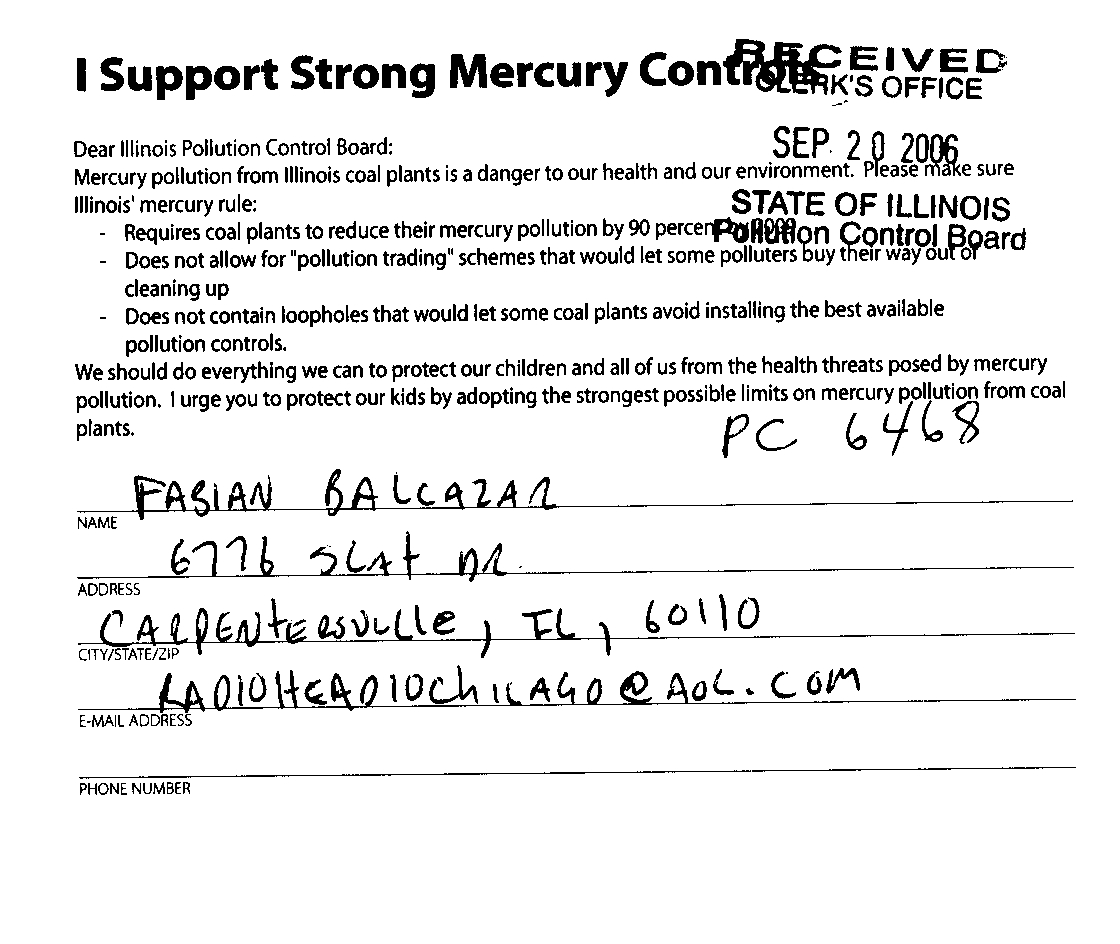 I Support Strong Mercury Controls
RECEIVED
CLERK'S OFFICE
SEP 20 2006
STATE OF ILLINOIS
Pollution Control Board
Dear Illinois Pollution Control Board:
Mercury pollution from Illinois coal plants is a danger to our health and our environment. Please make sure
Illinois' mercury rule:
- Requires coal plants to reduce their mercury pollution by 90 percent by 2009
- Does not allow for "pollution trading" schemes that would let some polluters buy their way out of
cleaning up
- Does not contain loopholes that would let some coal plants avoid installing the best available
pollution controls.
We should do everything we can to protect our children and all of us from the health threats posed by mercury
pollution. I urge you to protect our kids by adopting the strongest possible limits on mercury pollution from coal
plants.
PC 6468
FABIAN BALCAZAR
NAME
6776 SLAT DR.
ADDRESS
CARPENTERSVILLE, IL, 60110
CITY/STATE/ZIP
@AOL.COM
E-MAIL ADDRESS
PHONE NUMBER